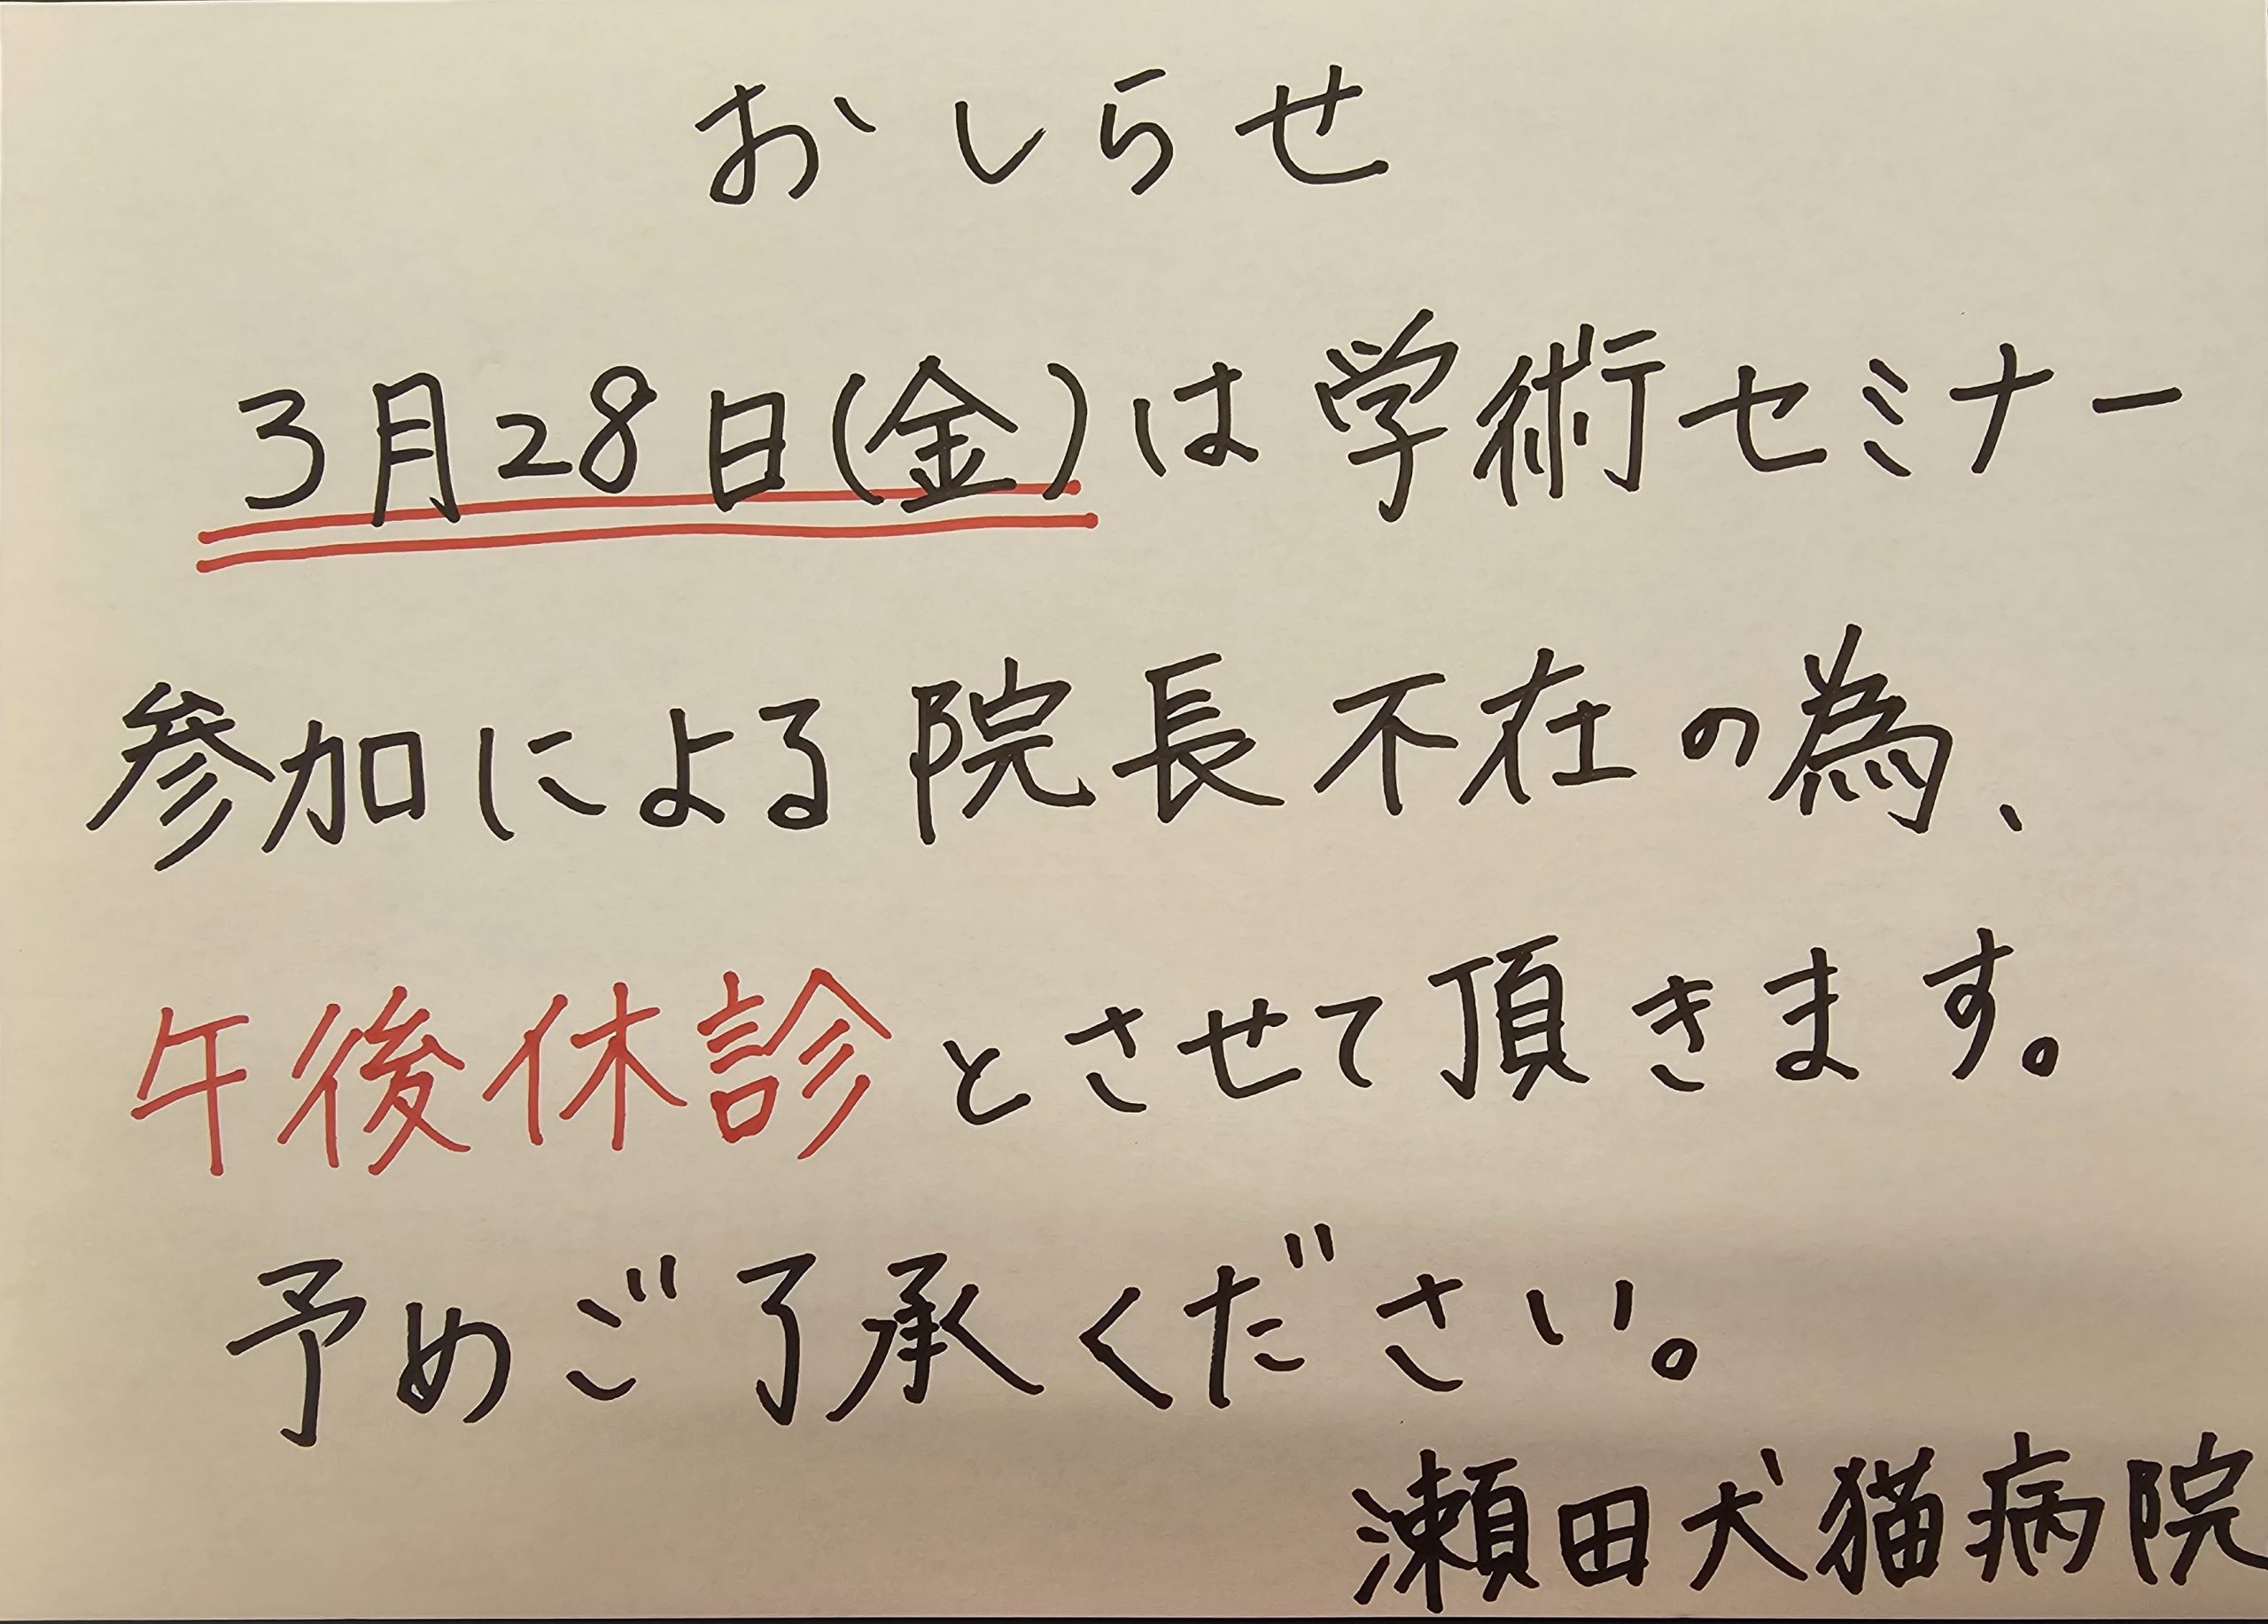 おしらせ
3月28日(金)は学術セミナー
参加による院長不在の為、
午後休診とさせて頂きます。
予めご了承ください。
瀬田犬猫病院